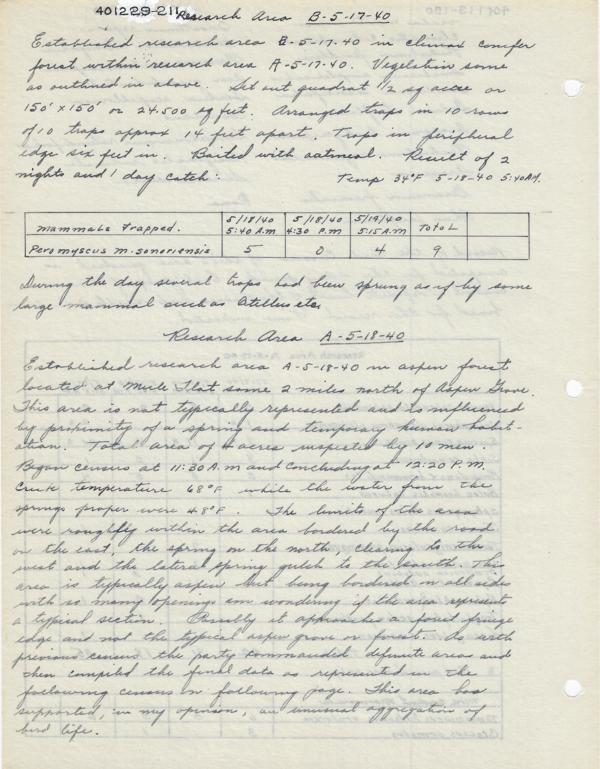 401229-211
Research Area B-5-17-40
Established research area B-5-17-40 in climax conifer
forest within research area A-5-17-40. Vegetation same
as outlined in above. Set out quadrat 1/2 sq acre or
150' x 150' or 24,500 sq feet. Arranged traps in 10 rows
of 10 traps approx 14 feet apart. Traps in peripheral
edge six feet in. Baited with oatmeal. Result of 2
nights and 1 day catch: Temp 34°F 5-18-40 5:40 A.M.
Mammals Trapped. 5/18/40 5:40 A.M 5/18/40 4:30 P.M 5/19/40 5:15 A.M Total
Peromyscus m. sonoriensis 5 0 4 9
During the day several traps had been sprung as if by some
large mammal such as Citellus etc.
Research Area A-5-18-40
Established research area A-5-18-40 in aspen forest
located at Mule Flat some 2 miles north of Aspen Grove.
This area is not typically represented and is influenced
by proximity of a spring and temporary human habit-
ation. Total area of 4 acres inspected by 10 men.
Began census at 11:30 A.M and concluding at 12:20 P.M.
Creek temperature 68°F while the water from the
springs proper were 48°F. The limits of the area
were roughly within the area bordered by the road
on the east, the spring on the north, clearing to the
west and the lateral spring gulch to the south. This
area is typically aspen but being bordered on all sides
with so many openings am wondering if the area represents
a typical section. Possibly it approaches a forest fringe
edge and not the typical aspen grove or forest. As with
previous census the party commanded definite areas and
then compiled the final data as represented in the
following census on following page. This area has
supported, in my opinion, an unusual aggregation of
bird life.